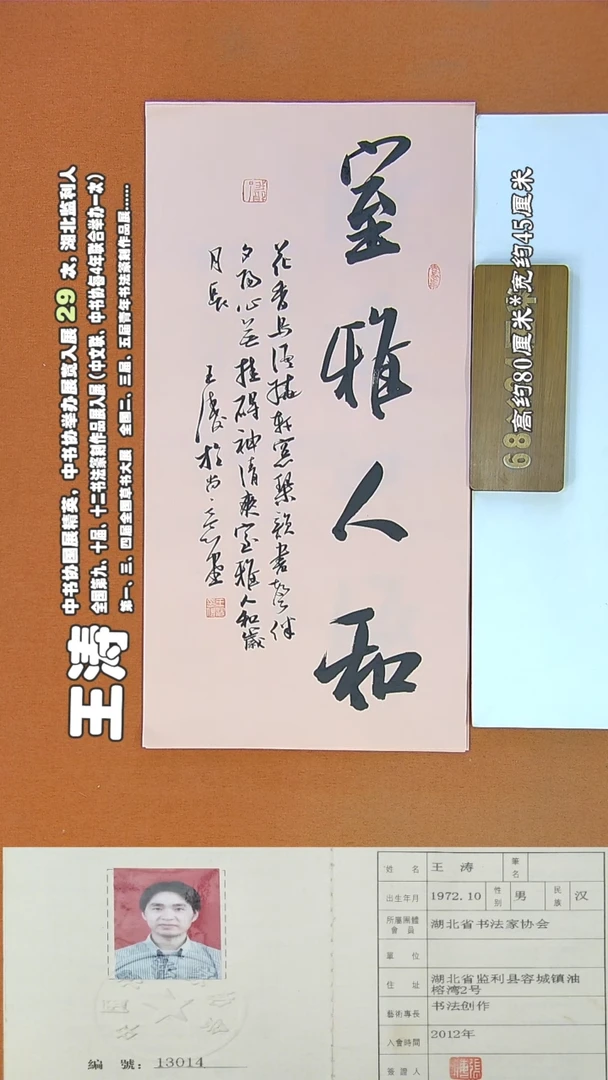 王涛
中书协国展精英，中书协举办展赛入展 29 次，湖北监利人
全国第九、十届、十二书法篆刻作品展入展（中文联、中书协每4年联合举办一次）
第一、三、四届全国草书大展 全国二、三届、五届青年书法篆刻作品展……
室雅人和
花香鸟语 轩窗琴韵书声伴
夕阳心无挂碍神清爽室雅人和岁
月长 王涛于尚
68
高约80厘米*宽约45厘米
姓名 王涛 笔名
出生年月 1972.10 性别 男 民族 汉
所屬團體會員 湖北省书法家协会
單位
住址 湖北省监利县容城镇油榕湾2号
藝術專長 书法创作
入會時間 2012年
簽證人
編號：13014